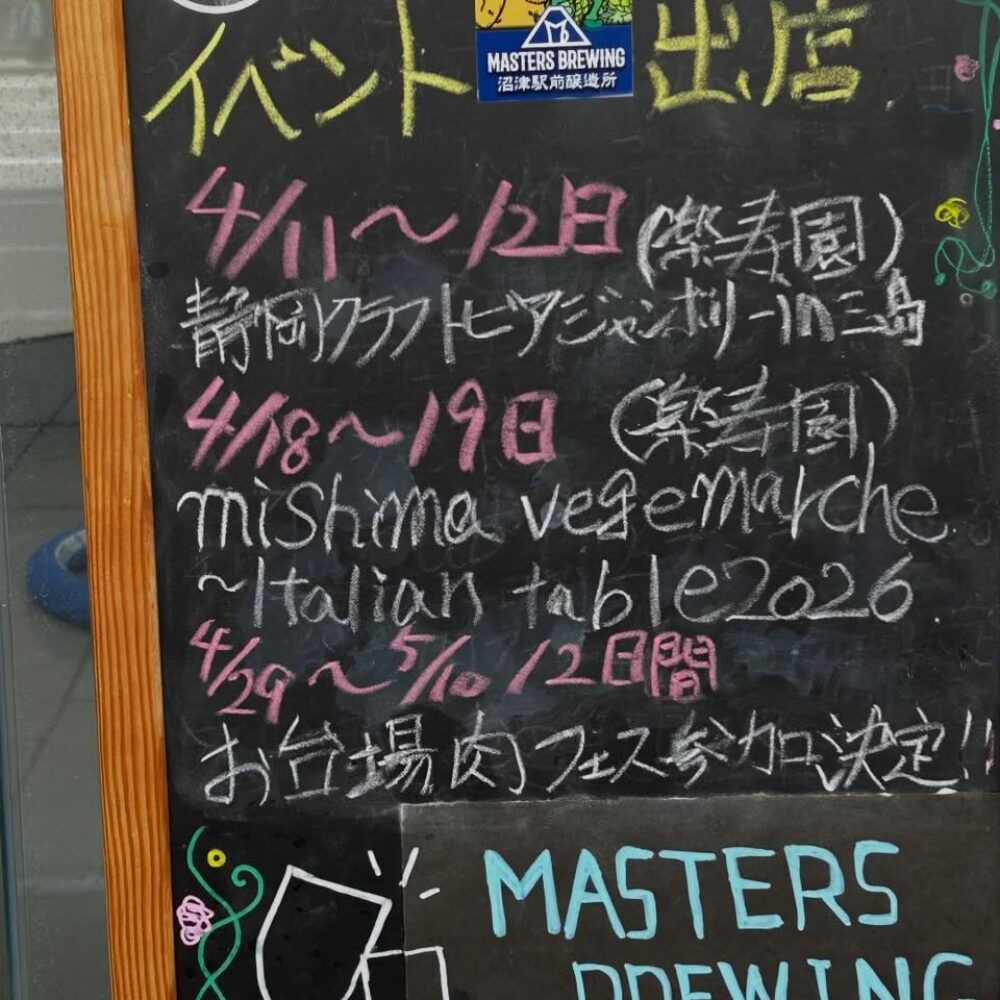 イベント 出店
MASTERS BREWING
沼津駅前醸造所
4/11～12日 (楽寿園)
静岡クラフトビアジャンボリーin三島
4/18～19日 (楽寿園)
mishima vegemarche
～Italian table2026
4/29～5/10 12日間
お台場肉フェス参加決定!!
MASTERS
BREWING